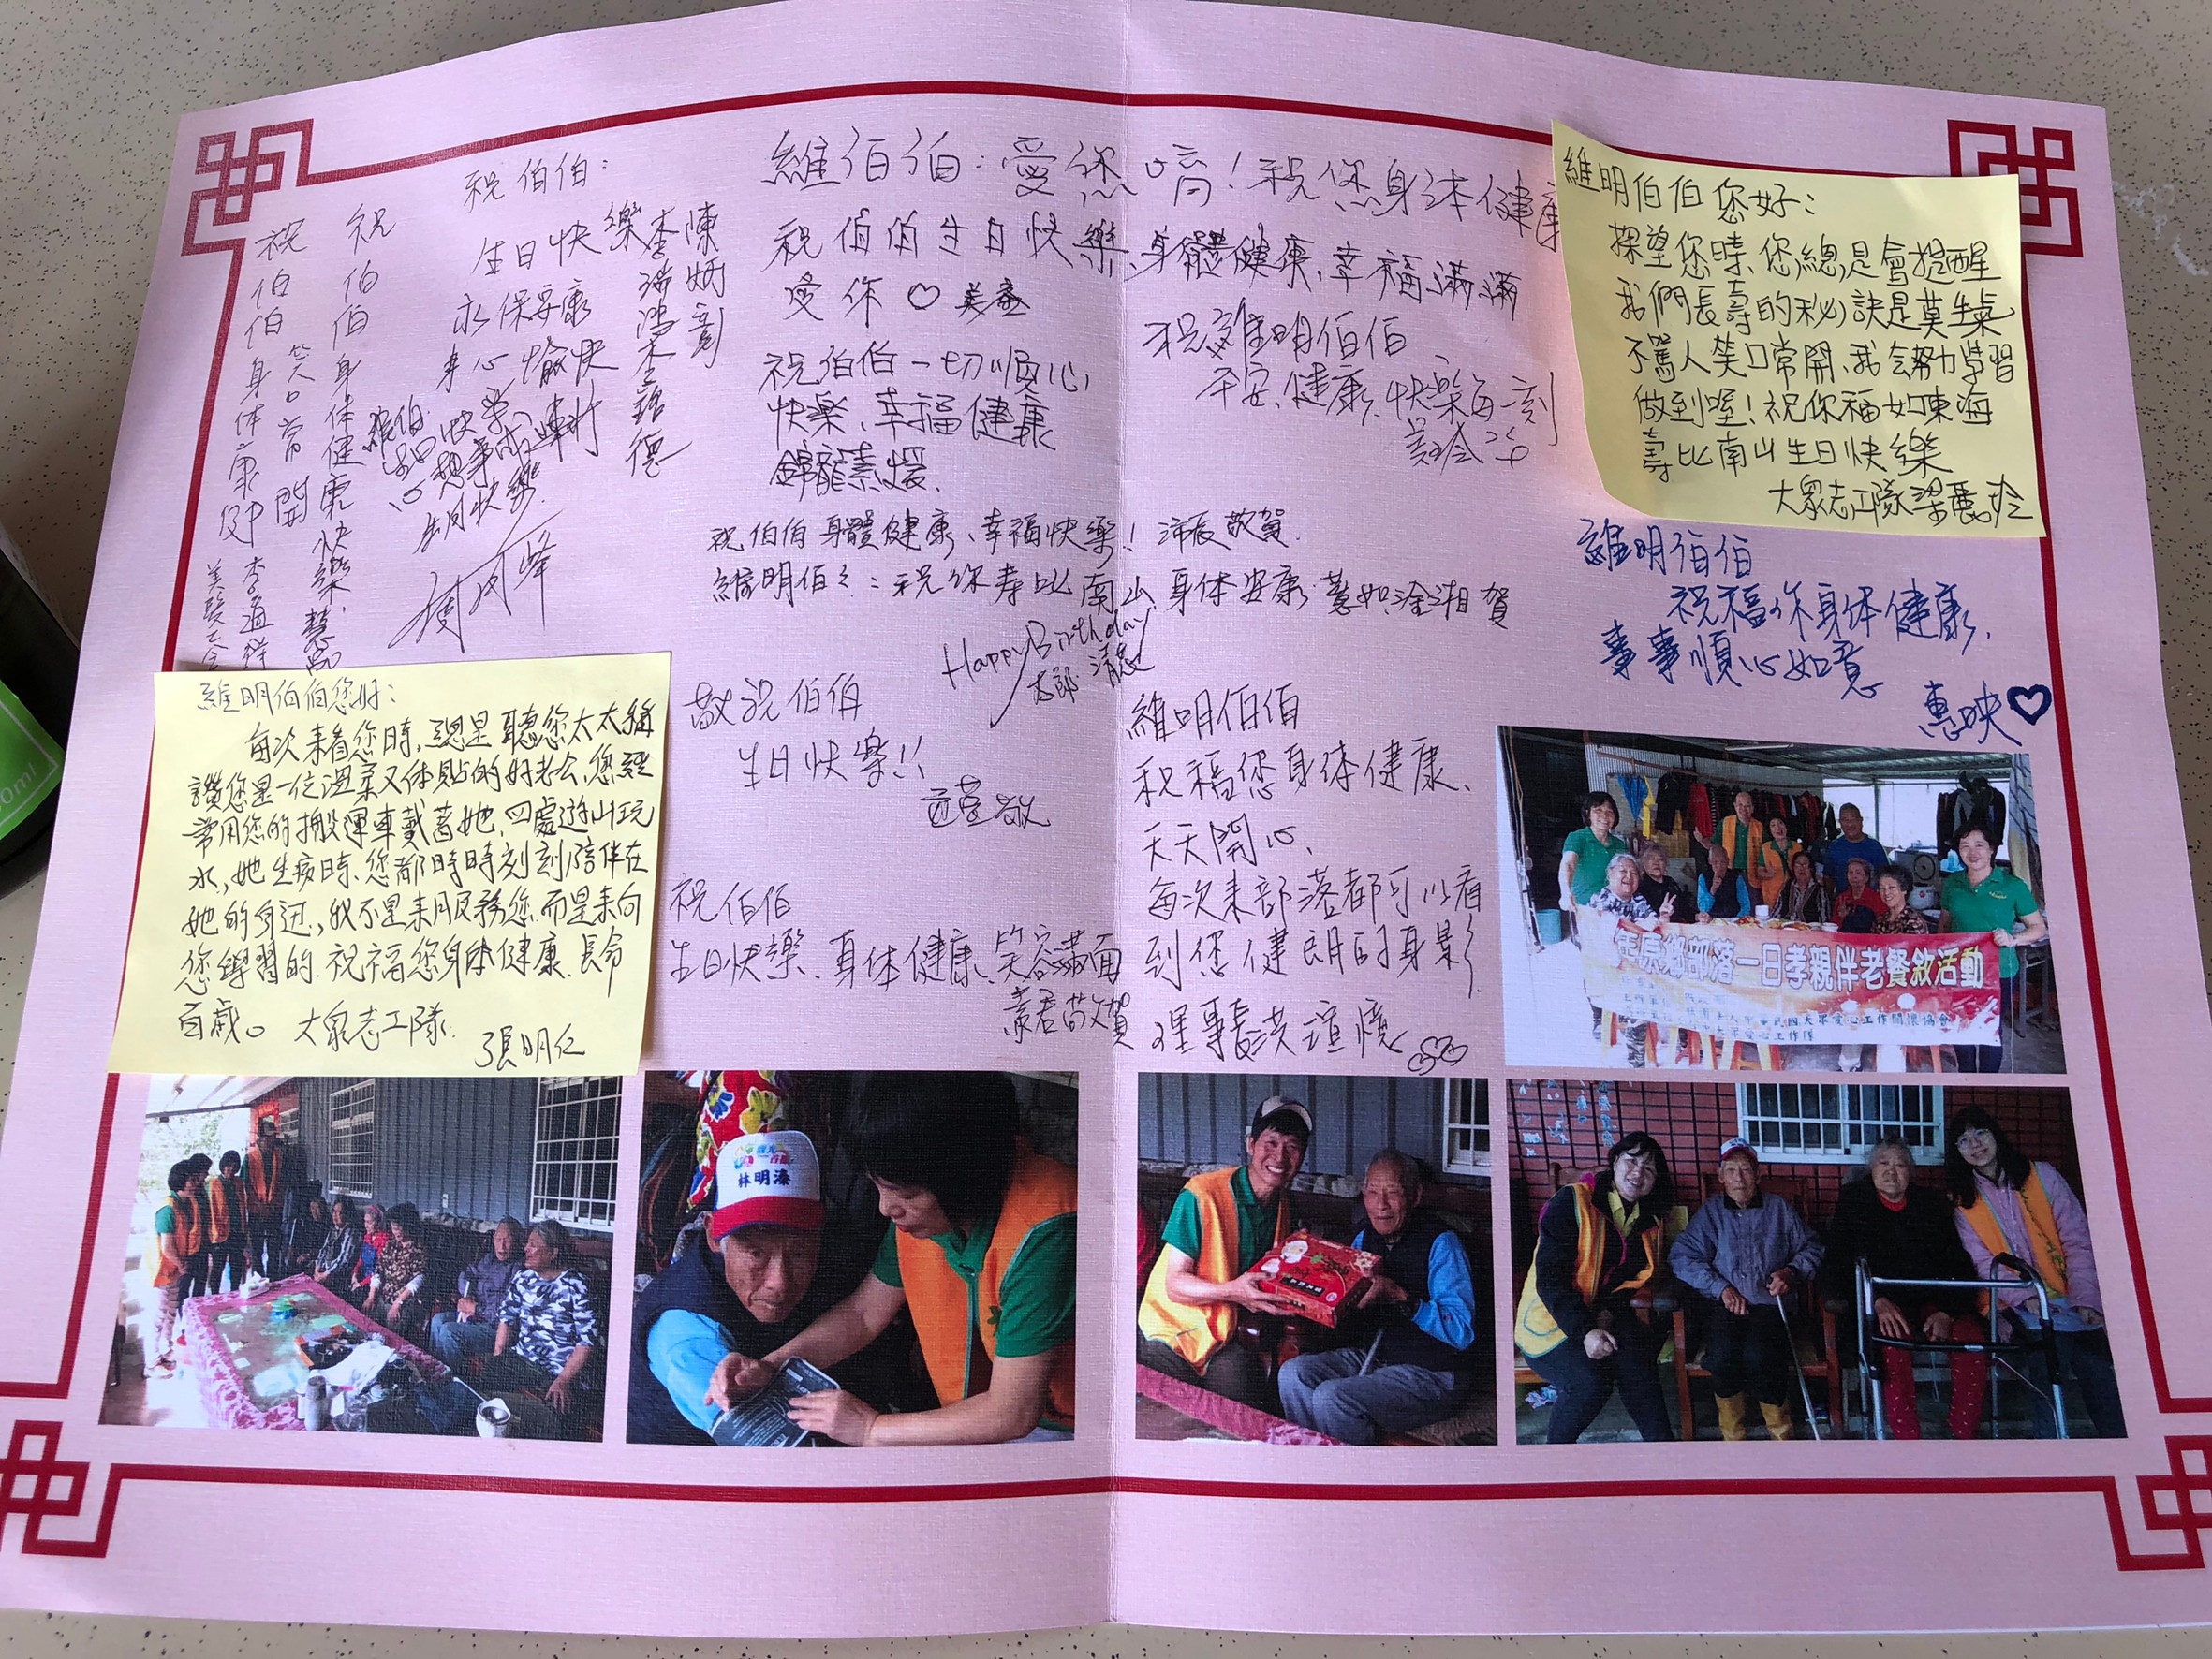 祝伯伯身体康健
李適祥
美賢
祝伯伯身体健康快樂
笑口常開
祝伯伯：
生日快樂
永保安康
身心愉快
陳炳彰
維伯
心想事成
生日快樂
維伯伯：愛您唷！祝您身体健康
祝伯伯生日快樂、身體健康、幸福滿滿
愛你♡
祝伯伯一切順心
快樂、幸福健康
祝維明伯伯
平安、健康、快樂每一刻
祝伯伯身體健康、幸福快樂！沛辰敬賀.
維明伯：祝你壽比南山身体安康
賀
Happy Birthday
敬祝伯伯
生日快樂!!
敬
祝伯伯
生日快樂、身体健康、笑容滿面
素君敬賀
維明伯伯
祝福您身体健康、
天天開心、
每次來部落都可以看
到您健朗的身影
理事長洪
維明伯伯您好：
探望您時、您總是會提醒
我們長壽的秘訣是莫生氣
不罵人笑口常開、我会努力學習
做到喔！祝你福如東海
壽比南山生日快樂
大眾志工隊梁麗玲
維明伯伯
祝福你身体健康、
事事順心如意
惠映♡
維明伯伯您好：
每次來看您時、總是聽您太太稱
讚您是一位溫柔又体貼的好老公、您經
常用您的搬運車載著她、四處遊山玩
水，她生病時、您都時時刻刻陪伴在
她的身边、我不是來服務您、而是來向
您學習的.祝福您身体健康、長命
百歲。大眾志工隊
張明仁
年原鄉部落一日孝親伴老餐敘活動
林明湊